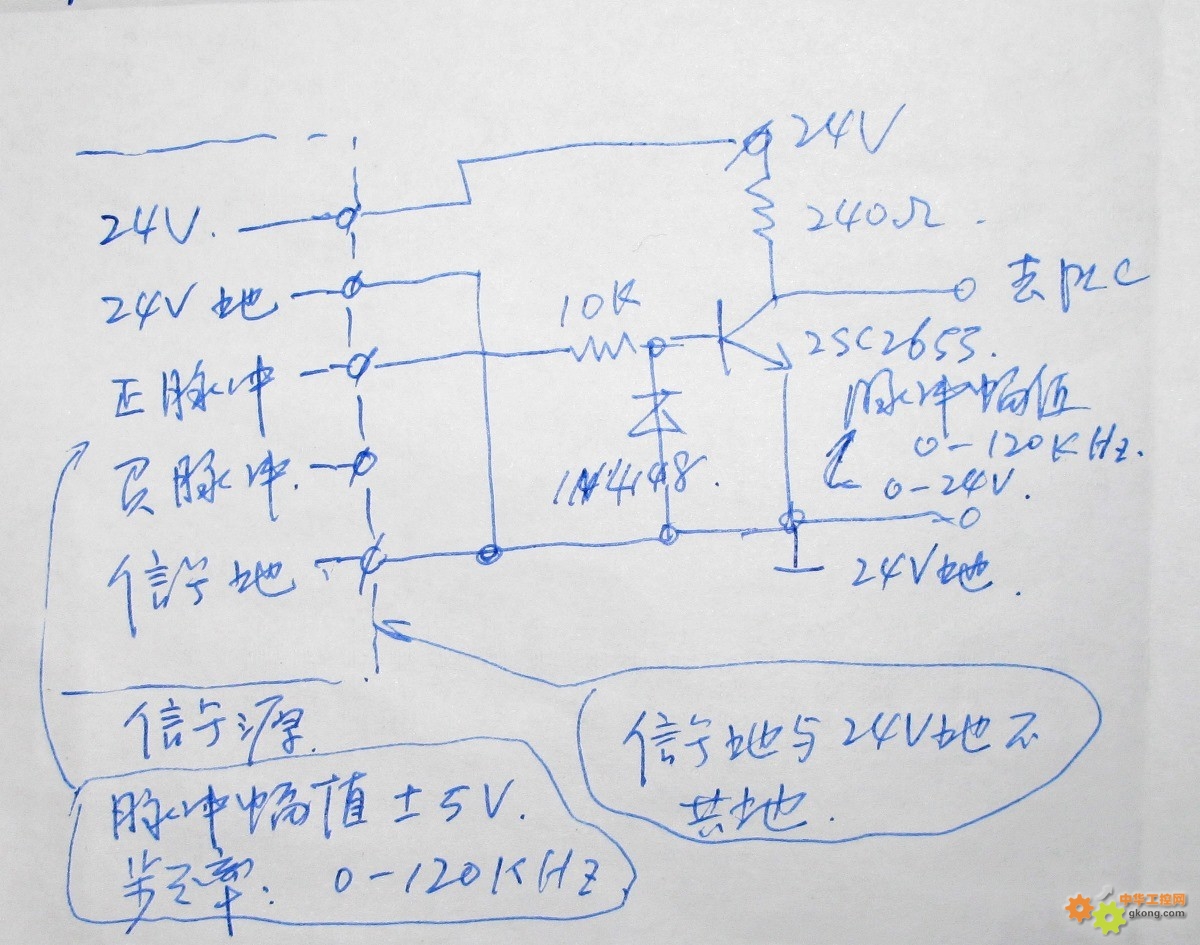 24V
24V.
240Ω.
24V地
10K
去PLC
正脉冲
2SC2653.
脉冲幅值
0-120KHz.
负脉冲.
1N4148.
0-24V.
信号地
24V地.
信号源.
信号地与24V地不
共地.
脉冲幅值±5V.
率: 0-120KHz,
中华工控网
gkong.com